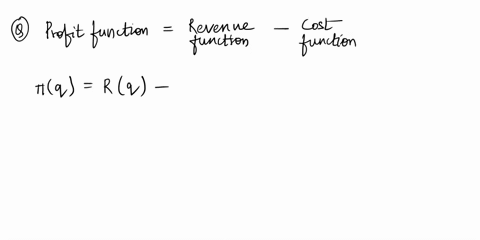 Q Profit function = Revenue function − Cost function
π(q) = R(q) −